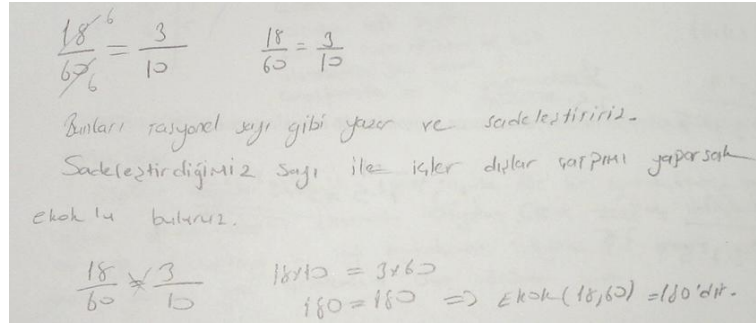 18/6 / 60/6 = 3/10    18/60 = 3/10
Bunları rasyonel sayı gibi yazar ve sadeleştiririz.
Sadeleştirdiğimiz sayı ile içler dışlar çarpımı yaparsak
ekok'u buluruz.
18/60 = 3/10    18x10 = 3x60
180 = 180 => Ekok(18,60) = 180'dir.